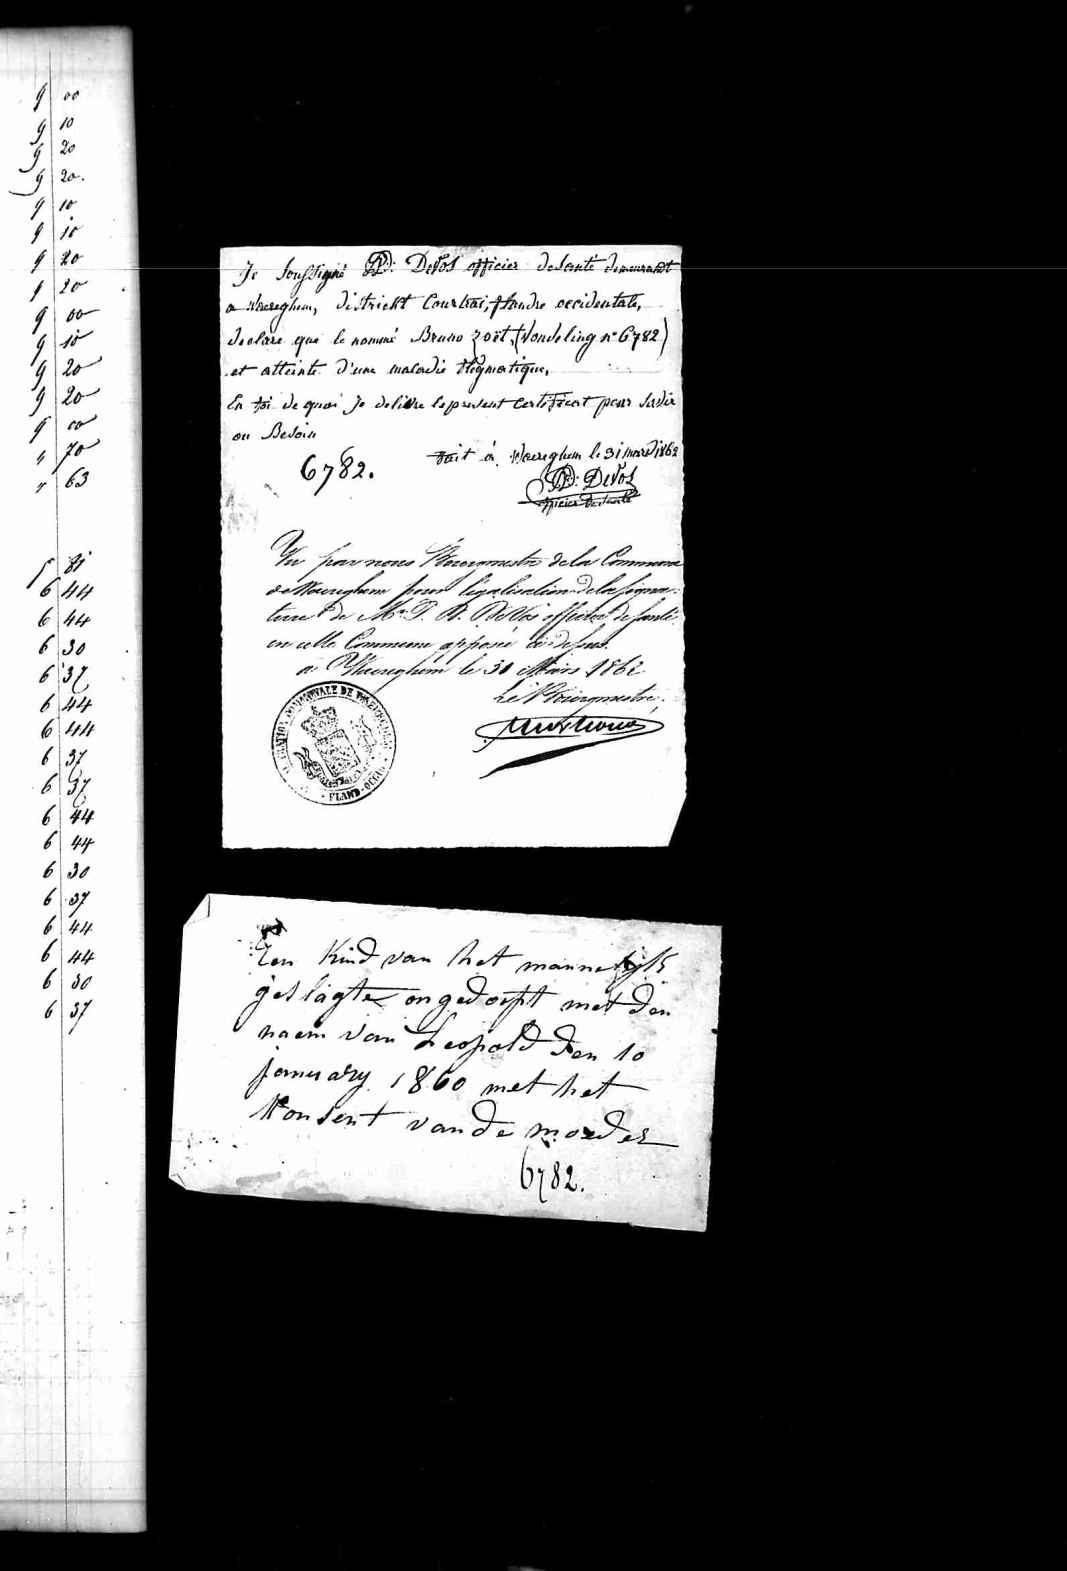 9 00
9 10
9 20
9 20.
9 10
9 10
9 20
9 20
9 00
9 10
9 20
9 20
9 00
" 70
" 63
5 81
6 44
6 44
6 30
6 37
6 44
6 44
6 37
6 37
6 44
6 44
6 30
6 37
6 44
6 44
6 30
6 37
Je soussigné PD: DeVos officier desanté demeurant
a Waereghem, districkt Courtrai, flandre occidentale,
declare que le nommé Bruno zoët, (Vondeling n° 6782)
et atteinte d'une maladie flegmatique,
En foi de quoi Je delivre le present certificat pour servir
au Besoin
6782.
fait á Waereghem le 31 mars 1862
PD: DeVos
officier desanté
Vu par nous Bourgmestre de la Commune
de Waereghem pour légalisation de la signa-
ture de Mr. P. D. DeVos officier de santé
en cette Commune apposée ci-dessus.
à Waereghem le 31 Mars 1862
Le Bourgmestre,
COMMUNALE DE WAEREGHEM
FLAND-OCCID
Een Kind van het mannelijk
geslagte ongedoopt met den
naem van Leopold den 10
january 1860 met het
Konsent van de moeder
6782.